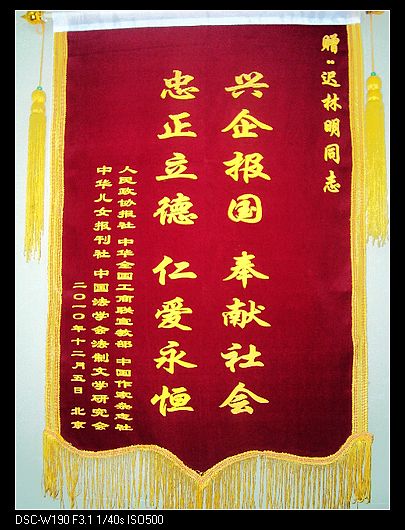 赠：迟林明同志
兴企报国 奉献社会
忠正立德 仁爱永恒
人民政协报社 中华全国工商联宣教部 中国作家杂志社
中华儿女报刊社 中国法学会法制文学研究会
二〇一〇年十二月五日 北京
DSC-W190 F3.1 1/40s ISO500